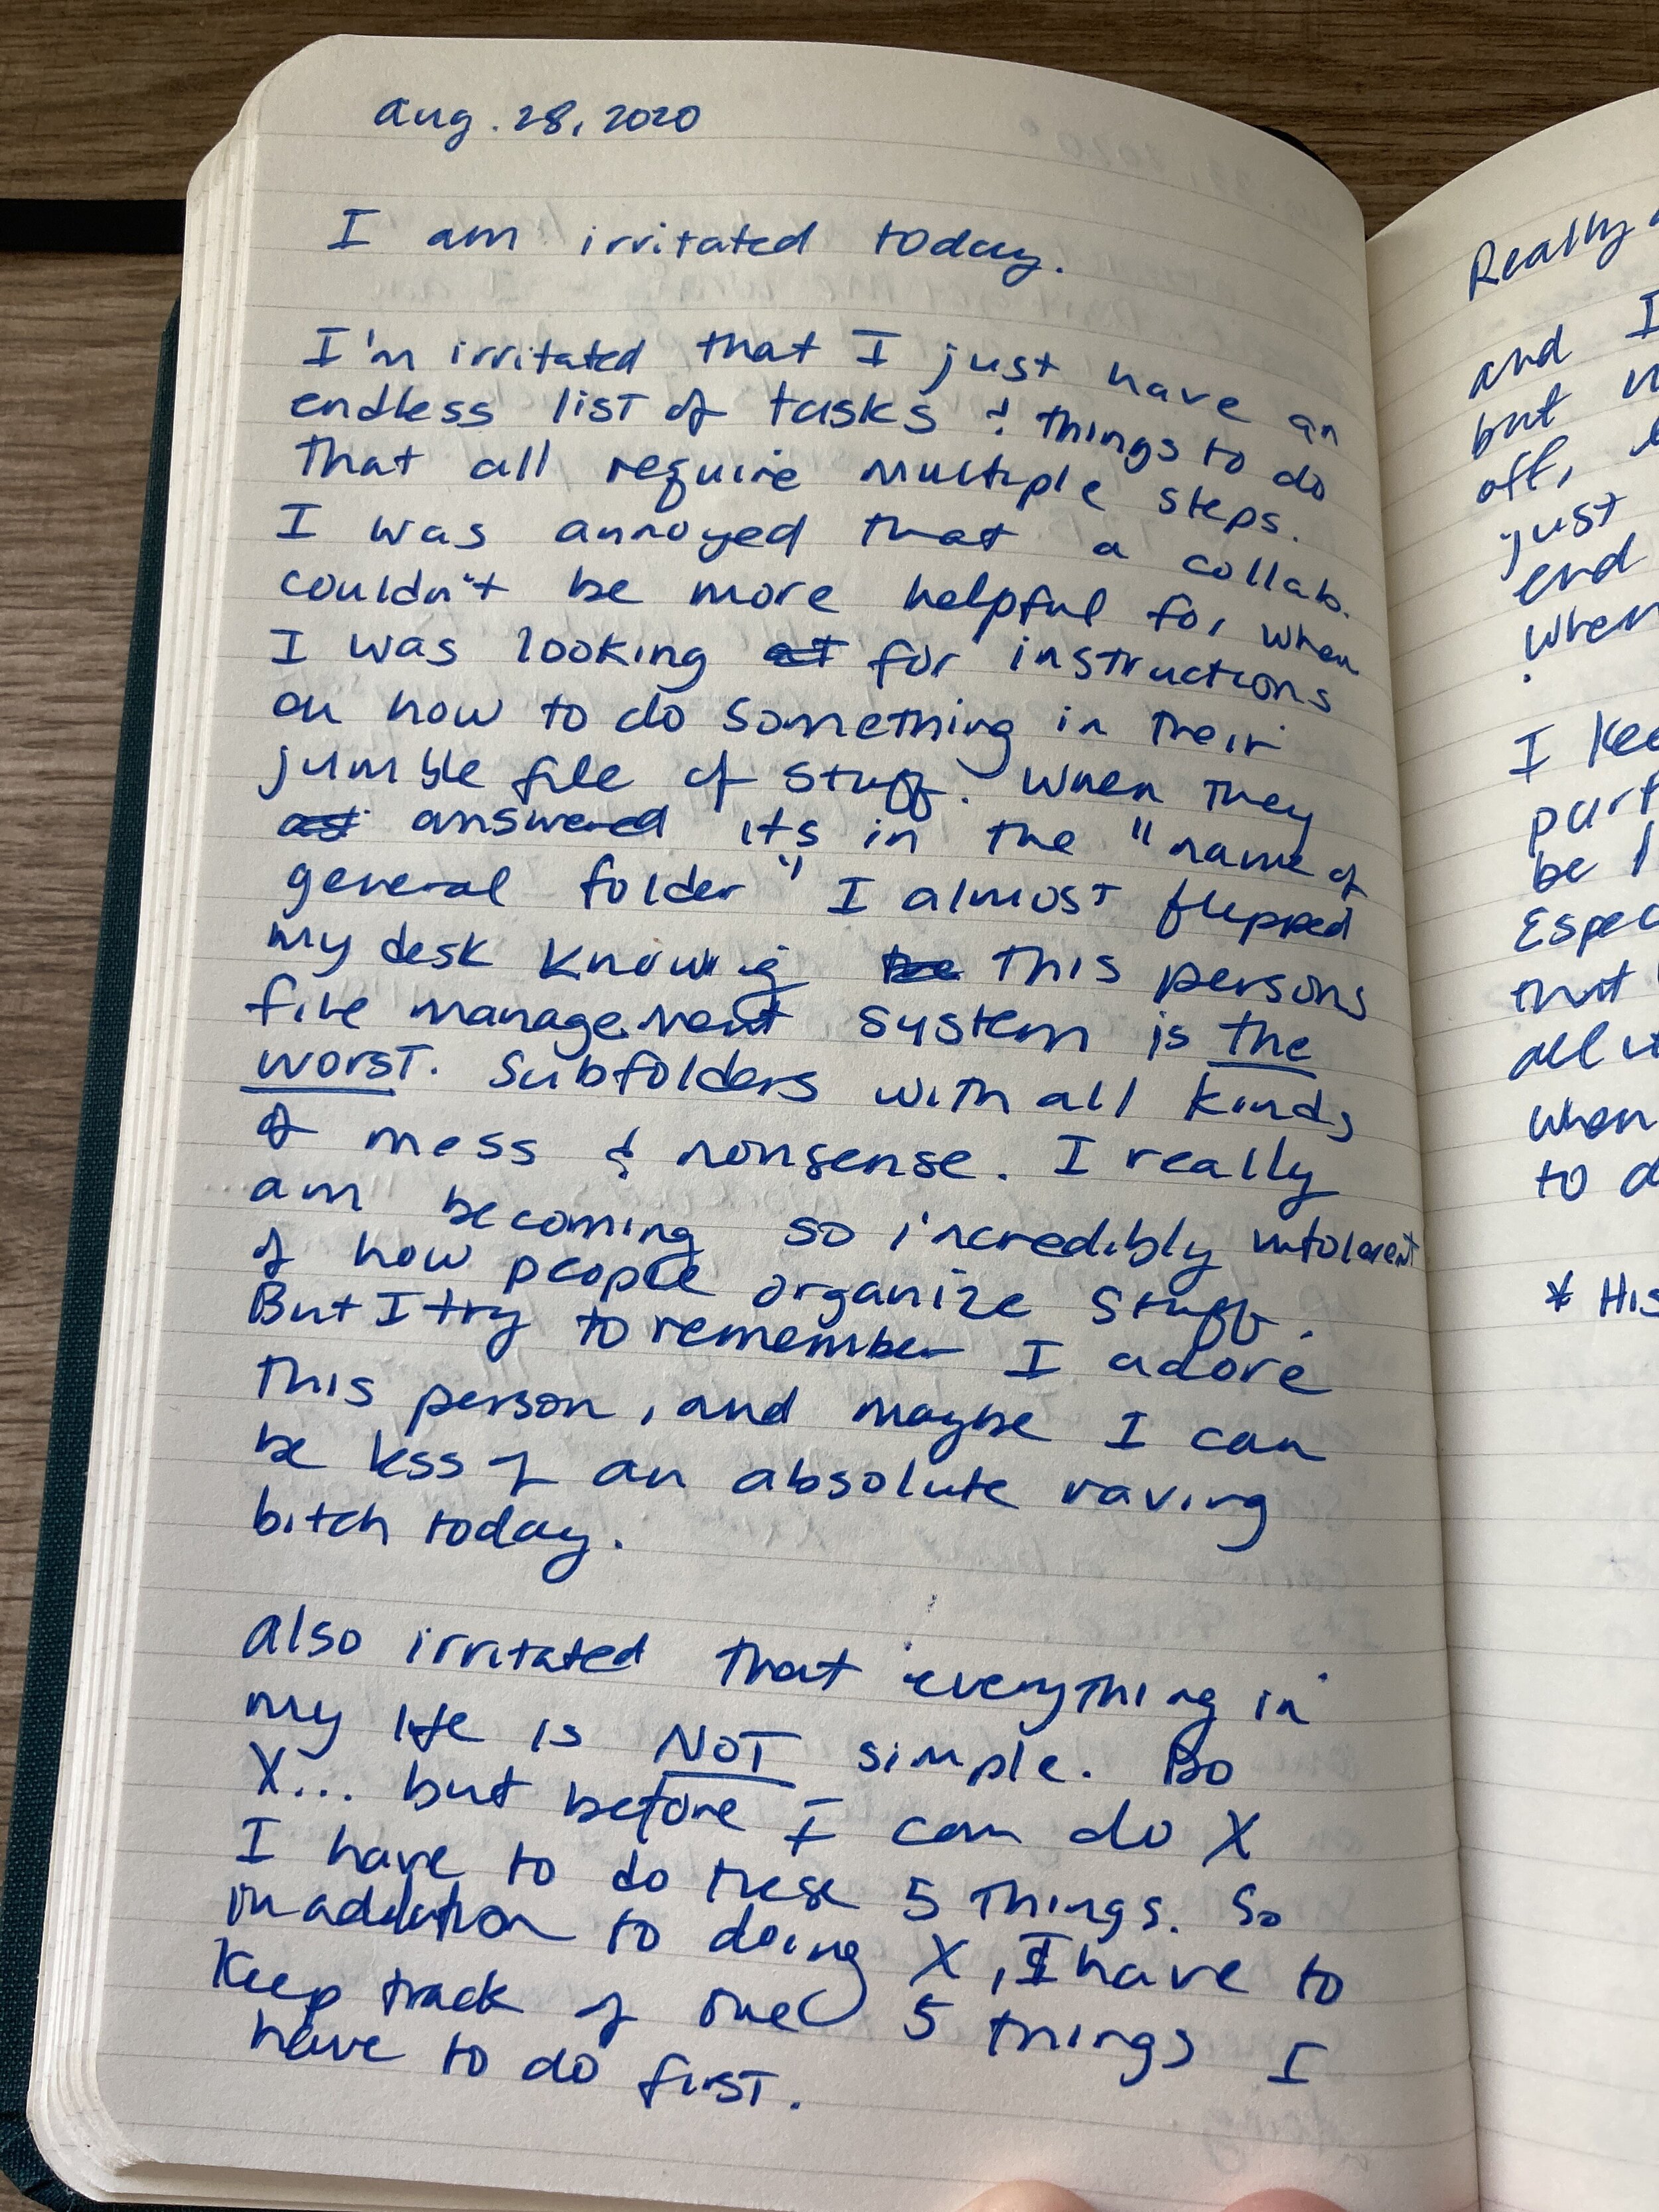 Aug. 28, 2020
I am irritated today.
I'm irritated that I just have an
endless list of tasks & things to do
that all require multiple steps.
I was annoyed that a collab.
couldn't be more helpful for when
I was looking at for instructions
on how to do something in their
jumble file of stuff. When they
answered its in the "name of
general folder" I almost flipped
my desk knowing this persons
file management system is the
worst. Subfolders with all kinds
of mess & nonsense. I really
am becoming so incredibly intolerent
of how people organize stuff.
But I try to remember I adore
this person, and maybe I can
be less of an absolute raving
bitch today.
Also irritated that everything in
my life is NOT simple. Do
X... but before I can do X
I have to do these 5 things. So
in addition to doing X, I have to
keep track of 5 things I
have to do first.
Really
and I
but
off,
just
end
when
I
be
that
all
when
to
* His